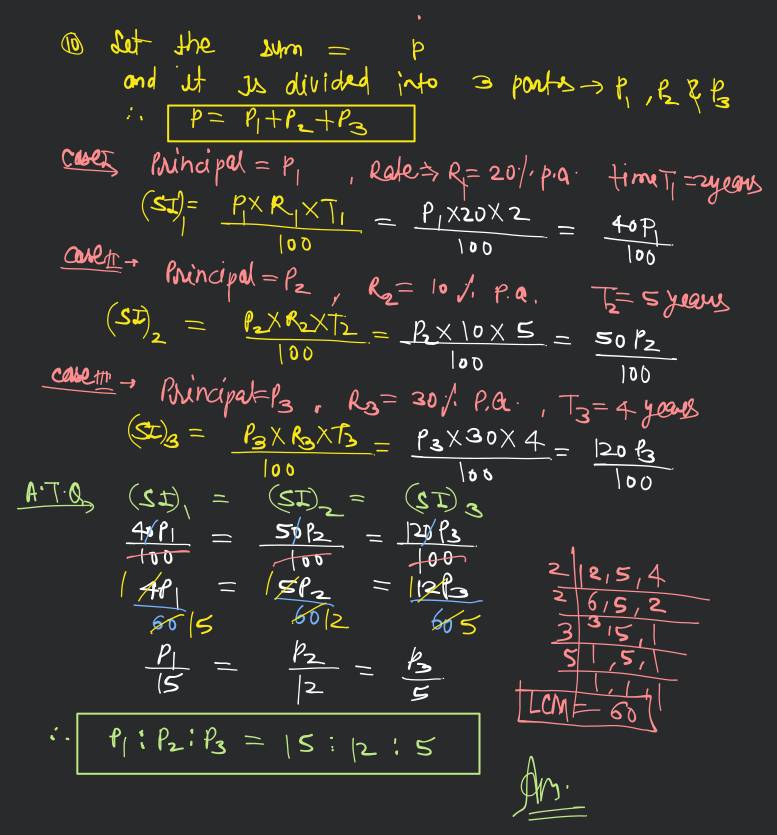 ⑩ Let the sum = P
and it is divided into 3 parts → P₁, P₂ & P₃
∴ P = P₁+P₂+P₃
Case I Principal = P₁, Rate ⇒ R₁ = 20% p.a. time T₁ = 2years
(SI)₁ = P₁×R₁×T₁/100 = P₁×20×2/100 = 40P₁/100
Case II → Principal = P₂, R₂ = 10% P.a. T₂ = 5 years
(SI)₂ = P₂×R₂×T₂/100 = P₂×10×5/100 = 50P₂/100
Case III → Principal = P₃, R₃ = 30% P.a., T₃ = 4 years
(SI)₃ = P₃×R₃×T₃/100 = P₃×30×4/100 = 120P₃/100
A.T.Q (SI)₁ = (SI)₂ = (SI)₃
40P₁/100 = 50P₂/100 = 120P₃/100
1 4P₁/60 15 = 1 5P₂/60 12 = 1 12P₃/60 5
P₁/15 = P₂/12 = P₃/5
∴ P₁ : P₂ : P₃ = 15 : 12 : 5
2 | 12, 5, 4
2 | 6, 5, 2
3 | 3, 5, 1
5 | 1, 5, 1
1, 1, 1
LCM = 60
Ans.